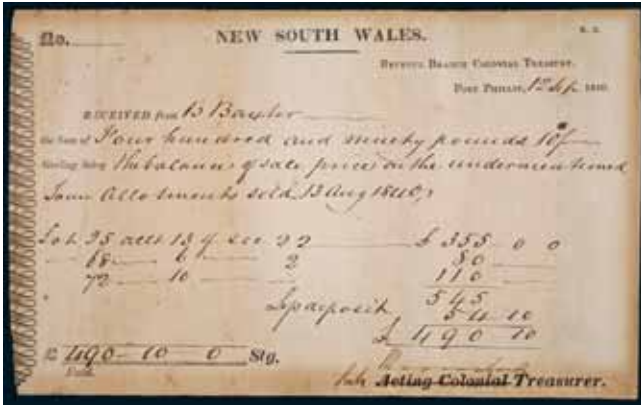 No.
NEW SOUTH WALES.
REVENUE BRANCH COLONIAL TREASURY,
PORT PHILLIP, 12 Sep. 1840
RECEIVED from B Baxter
the Sum of Four hundred and ninety pounds 10/-
Sterling being the balance of sale price on the undermentioned
Town Allotments sold 13 Aug 1840,
Lot 35 allt 13 of sec 22 £ 355 0 0
68 6 2 80
72 10 110
545
Less deposit 54 10
£ 490 10
£ 490 10 0 Stg.
Acting Colonial Treasurer.